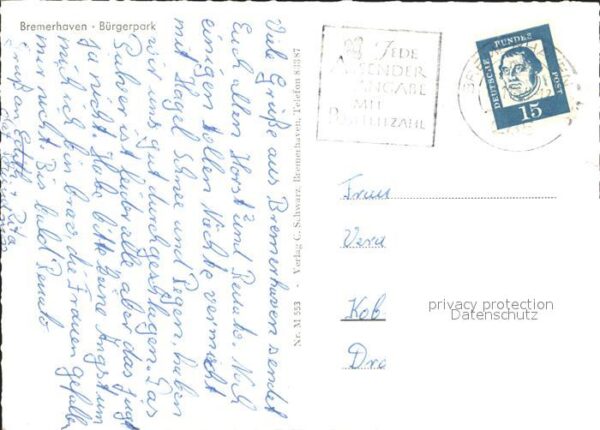 Bremerhaven · Bürgerpark
Viele Grüße aus Bremerhaven sendet
Euch allen Horst und Renate. Nach
einigen tollen Nächte vermischt
mit Hagel Schnee und Regen, haben
wir uns gut durchgeschlagen. Das
Pulver ist fast alle aber das
ja nichts. Habe bitte keine Angst um
mich ich bin brav, die Frauen gefallen
mir nicht. Bis bald Renate
Gruß an Edith + Rita
Nr. M 553 · Verlag C. Schwarz, Bremerhaven, Telefon 83387
JEDE
ABSENDER
ANGABE
MIT
POSTLEITZAHL
DEUTSCHE BUNDESPOST
15
Frau
Vera
Kob
Dre
privacy protection
Datenschutz